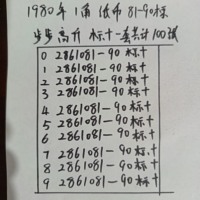 1980年1角纸币81-90标
步步高升标十一套共计100张
0 2861081-90标十
1 2861081-90标十
2 2861081-90标十
3 2861081-90标十
4 2861081-90标十
5 2861081-90标十
6 2861081-90标十
7 2861081-90标十
8 2861081-90标十
9 2861081-90标十